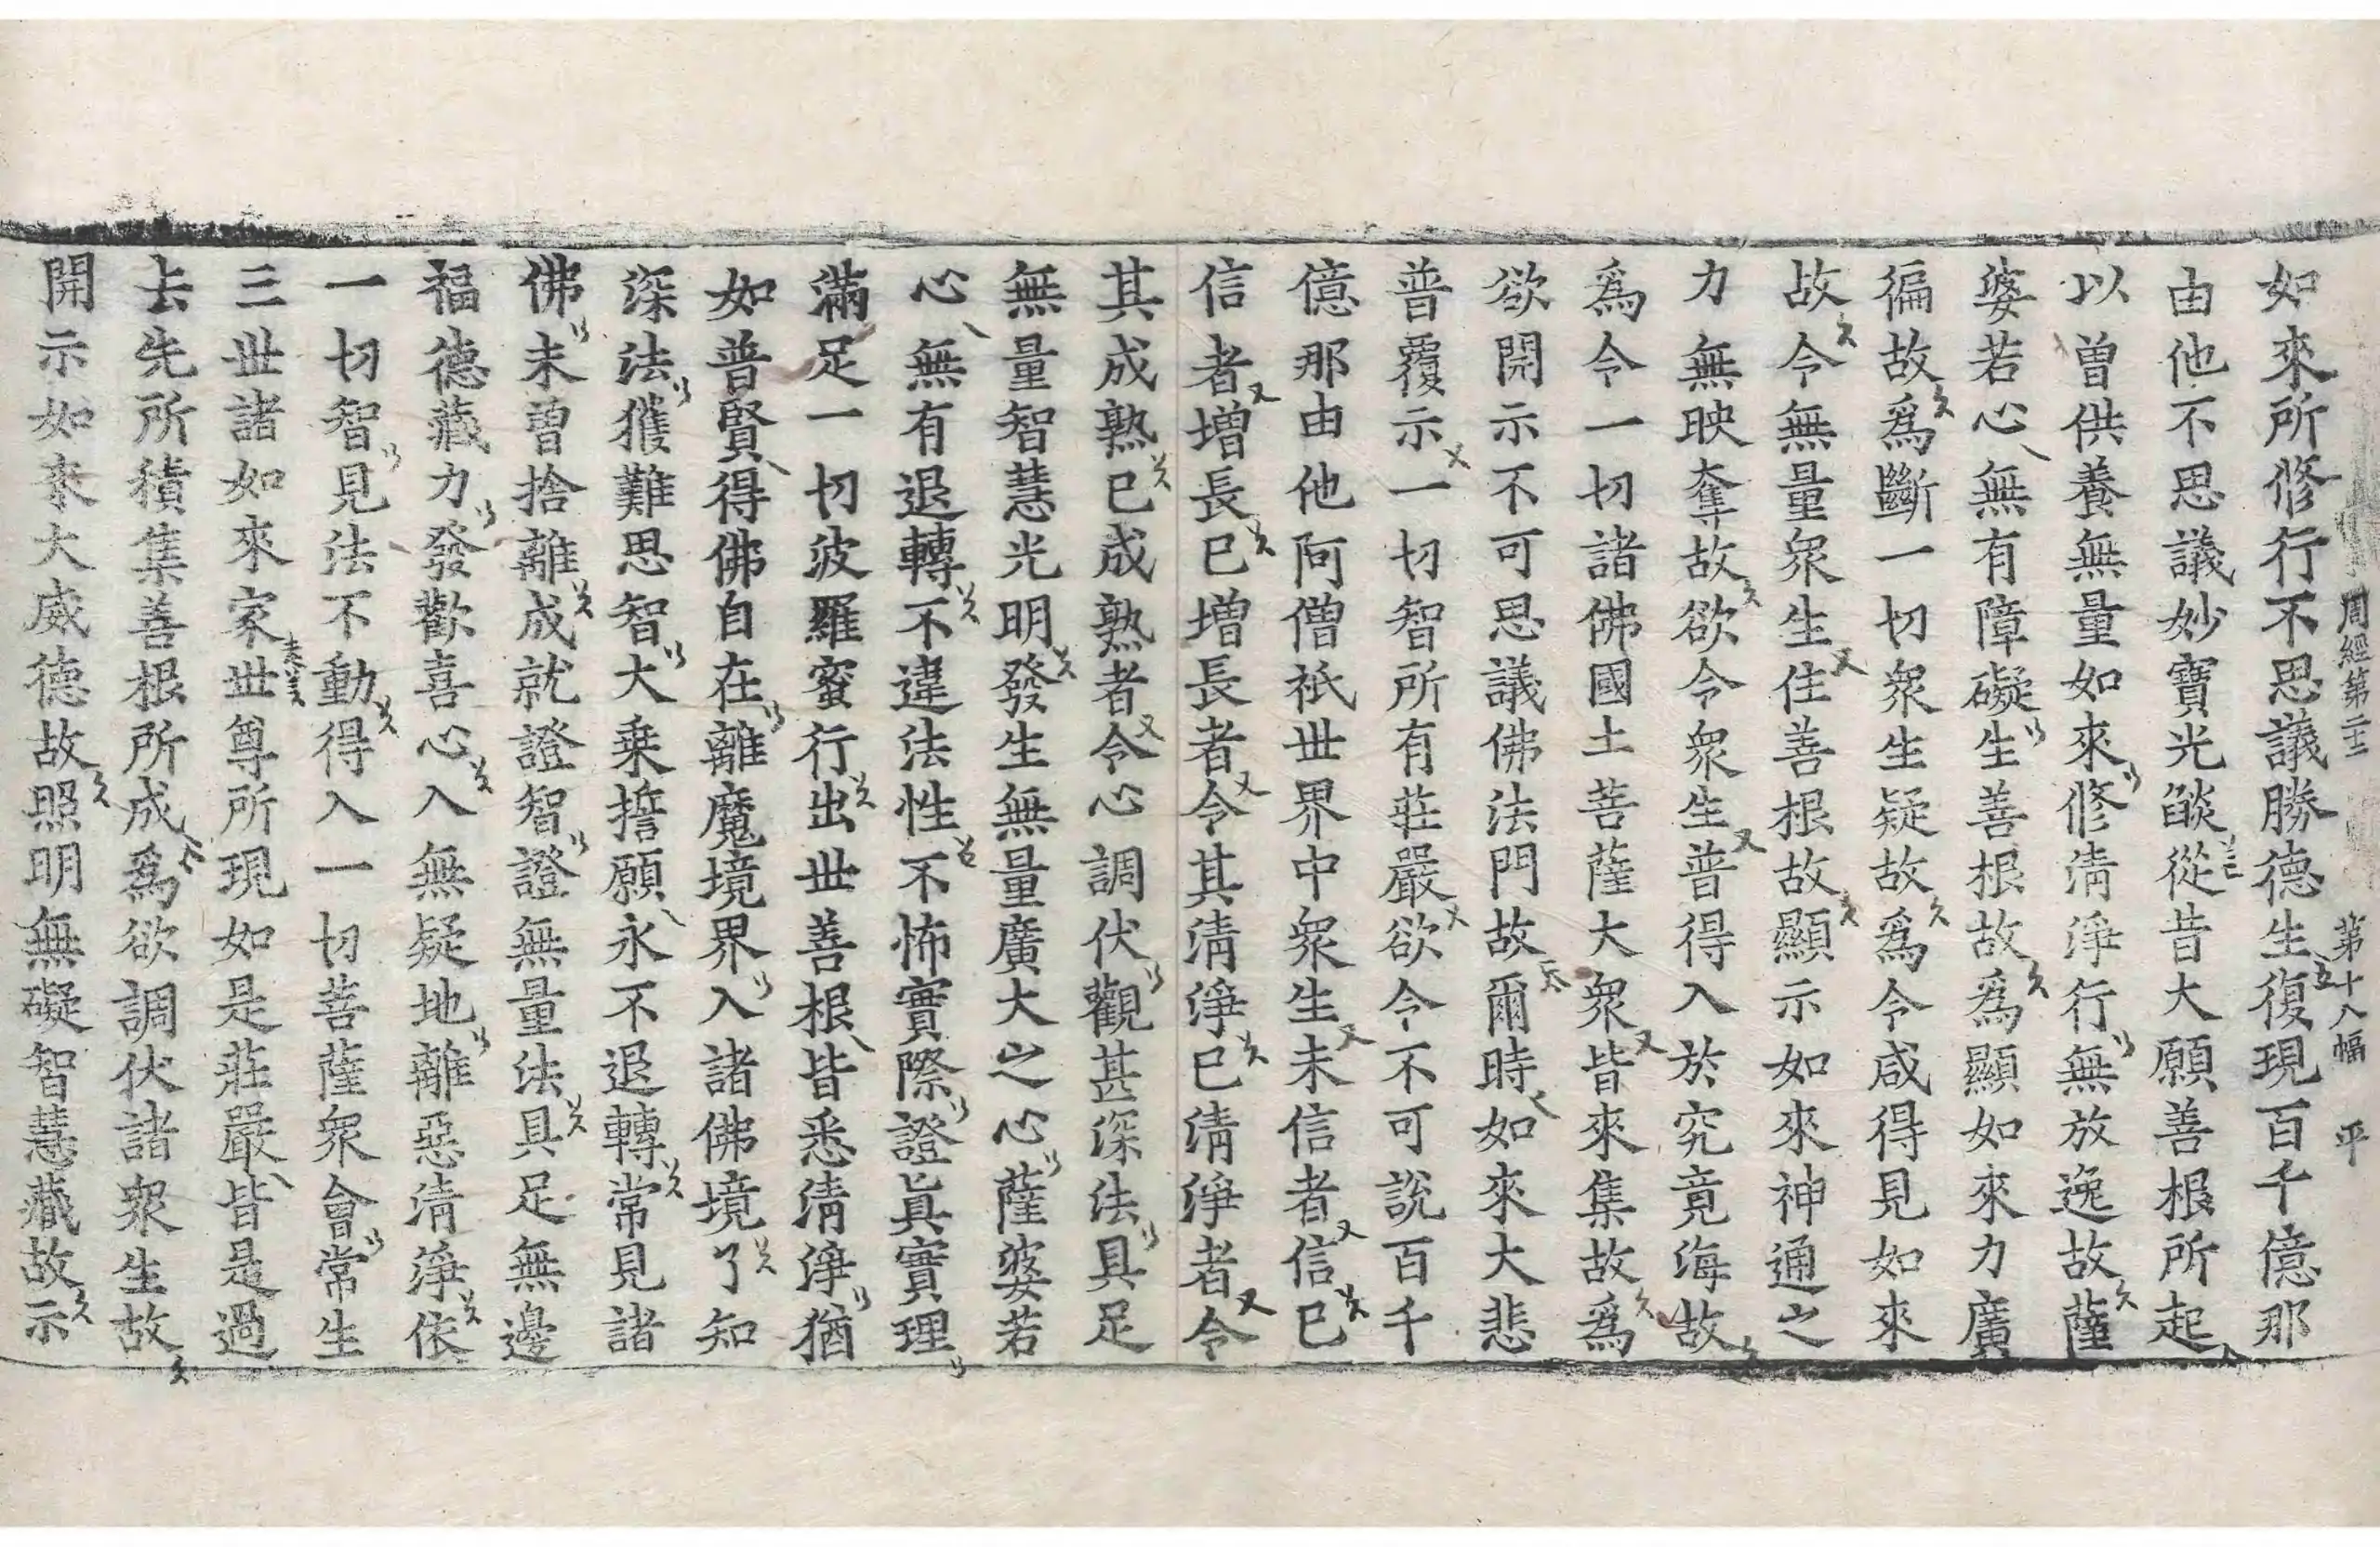 周經第二十二 第十八幅 平
如來所修行不思議勝德生復現百千億那
由他不思議妙寶光燄從昔大願善根所起
以曽供養無量如來修清淨行無放逸故薩
婆若心無有障礙生善根故爲顯如來力廣
徧故爲斷一切衆生疑故爲令咸得見如來
故令無量衆生住善根故顯示如來神通之
力無映奪故欲令衆生普得入於究竟海故
爲令一切諸佛國土菩薩大衆皆來集故爲
欲開示不可思議佛法門故爾時如來大悲
普覆示一切智所有莊嚴欲令不可說百千
億那由他阿僧祇世界中衆生未信者信已
信者增長已增長者令其清淨已清淨者令
其成熟已成熟者令心調伏觀甚深法具足
無量智慧光明發生無量廣大之心薩婆若
心無有退轉不違法性不怖實際證眞實理
滿足一切波羅蜜行出世善根皆悉清淨猶
如普賢得佛自在離魔境界入諸佛境了知
深法獲難思智大乗誓願永不退轉常見諸
佛未曽捨離成就證智證無量法具足無邊
福德藏力發歡喜心入無疑地離惡清淨依
一切智見法不動得入一切菩薩衆會常生
三世諸如來家世尊所現如是莊嚴皆是過
去先所積集善根所成爲欲調伏諸衆生故
開示如來大威德故照明無礙智慧藏故示